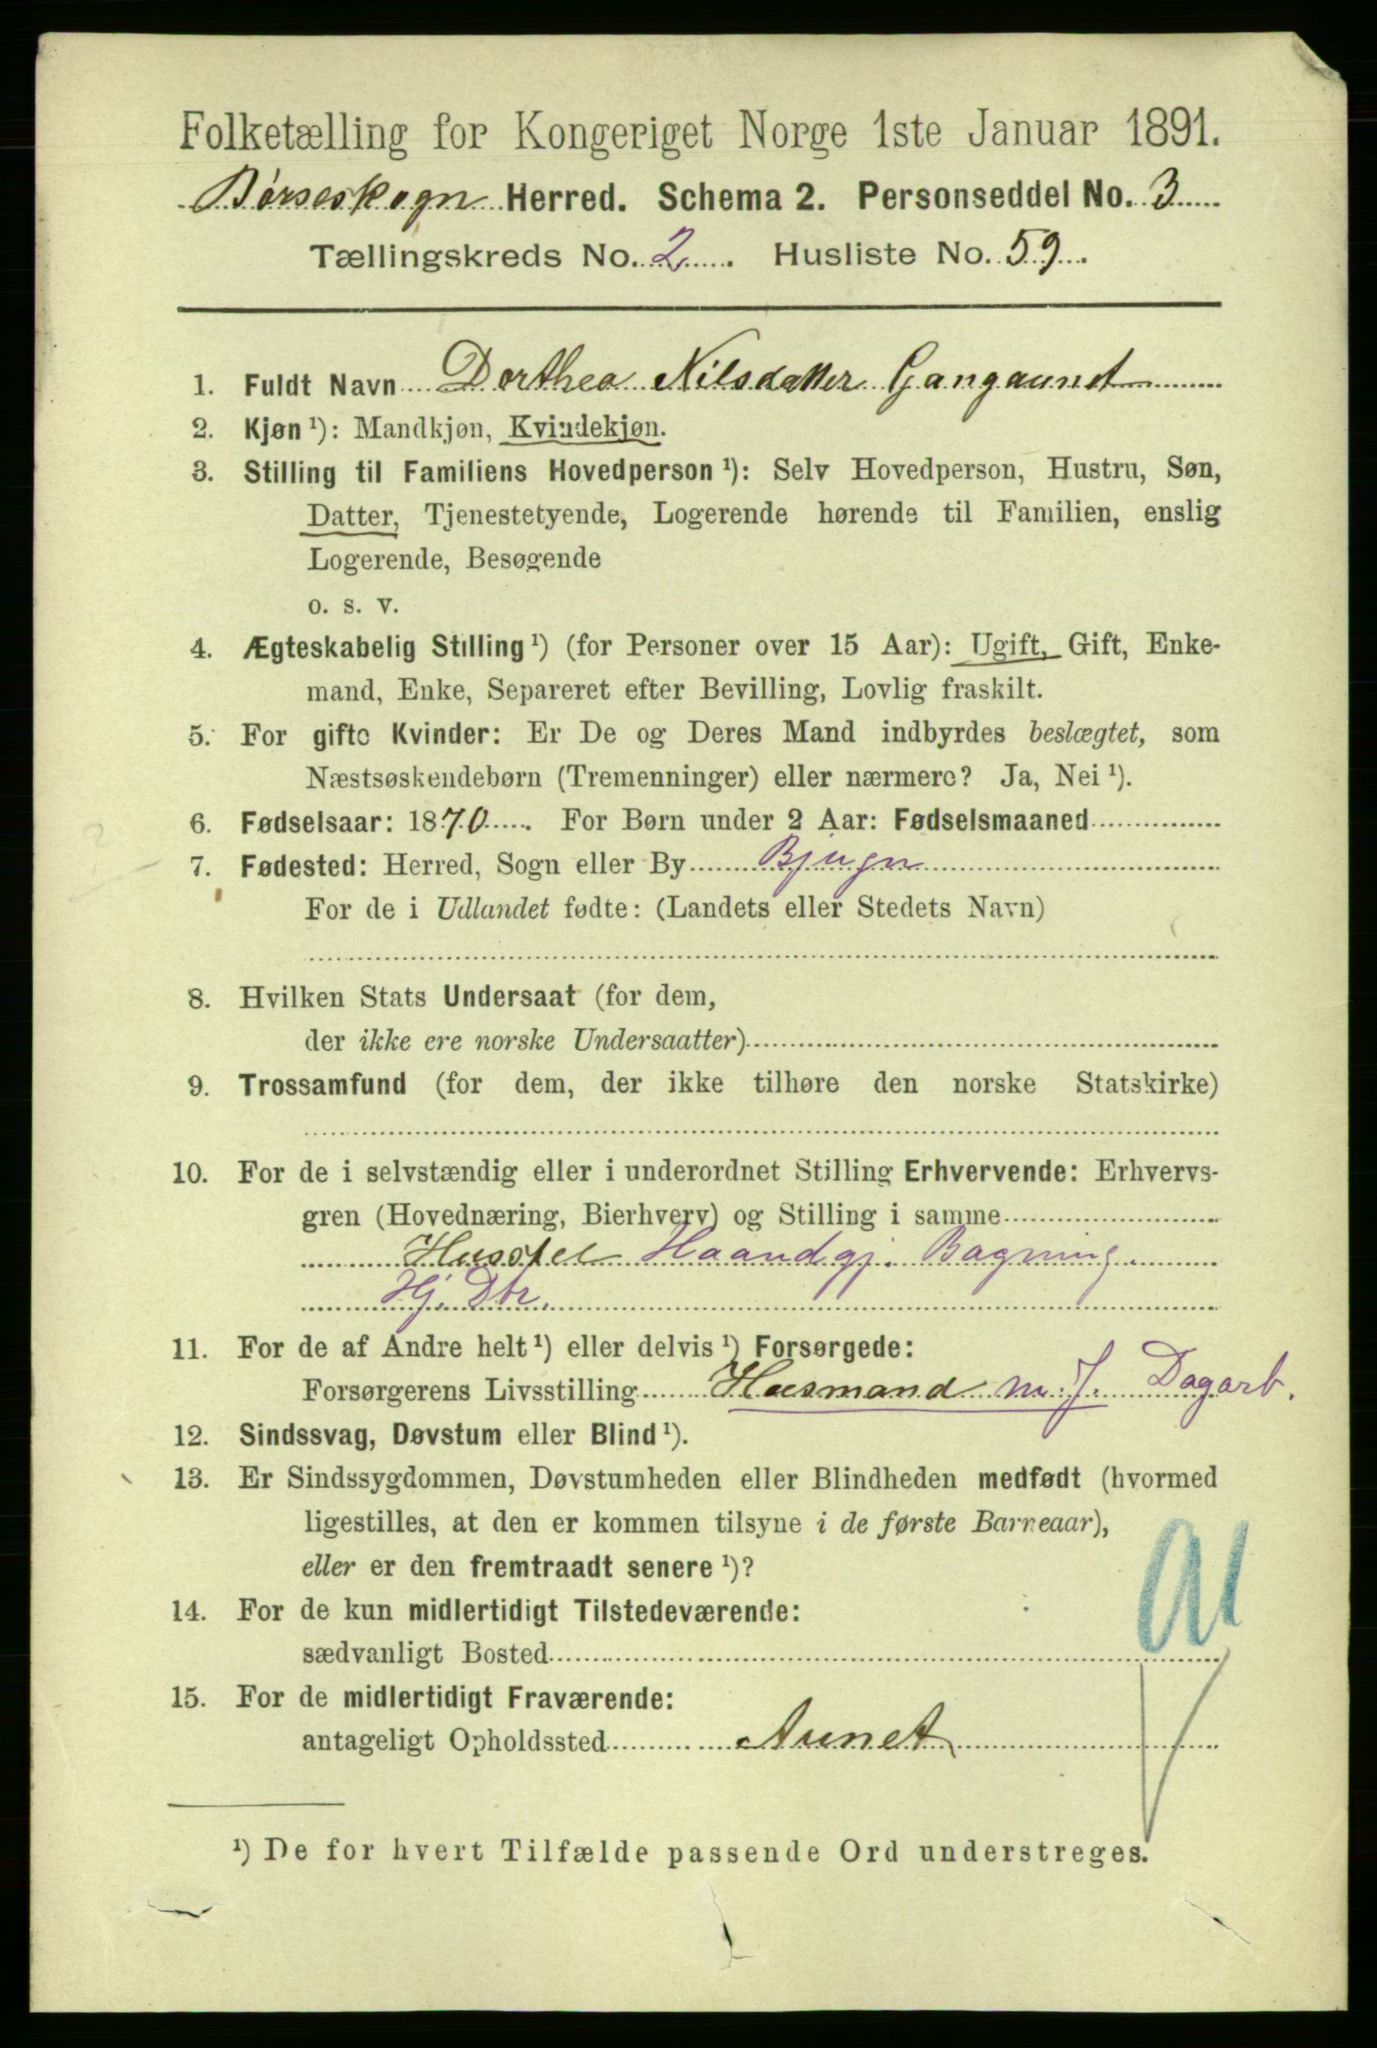 Folketælling for Kongeriget Norge 1ste Januar 1891.
Børseskogn Herred. Schema 2. Personseddel No. 3
Tællingskreds No. 2. Husliste No. 59.
1. Fuldt Navn Dorthea Nilsdatter Gangaunet
2. Kjøn ¹): Mandkjøn, Kvindekjøn.
3. Stilling til Familiens Hovedperson ¹): Selv Hovedperson, Hustru, Søn,
Datter, Tjenestetyende, Logerende hørende til Familien, enslig
Logerende, Besøgende
o. s. v.
4. Ægteskabelig Stilling ¹) (for Personer over 15 Aar): Ugift, Gift, Enke-
mand, Enke, Separeret efter Bevilling, Lovlig fraskilt.
5. For gifte Kvinder: Er De og Deres Mand indbyrdes beslægtet, som
Næstsøskendebørn (Tremenninger) eller nærmere? Ja, Nei ¹).
6. Fødselsaar: 1870. For Børn under 2 Aar: Fødselsmaaned
7. Fødested: Herred, Sogn eller By Bjugn
For de i Udlandet fødte: (Landets eller Stedets Navn)
8. Hvilken Stats Undersaat (for dem,
der ikke ere norske Undersaatter)
9. Trossamfund (for dem, der ikke tilhøre den norske Statskirke)
10. For de i selvstændig eller i underordnet Stilling Erhvervende: Erhvervs-
gren (Hovednæring, Bierhverv) og Stilling i samme
Husstel Haandgj. Bagning.
Hj. Dtr.
11. For de af Andre helt ¹) eller delvis ¹) Forsørgede:
Forsørgerens Livsstilling Husmand m. J. Dagarb.
12. Sindssvag, Døvstum eller Blind ¹).
13. Er Sindssygdommen, Døvstumheden eller Blindheden medfødt (hvormed
ligestilles, at den er kommen tilsyne i de første Barneaar),
eller er den fremtraadt senere ¹)?
14. For de kun midlertidigt Tilstedeværende:
sædvanligt Bosted
15. For de midlertidigt Fraværende:
antageligt Opholdssted Aunet
¹) De for hvert Tilfælde passende Ord understreges.